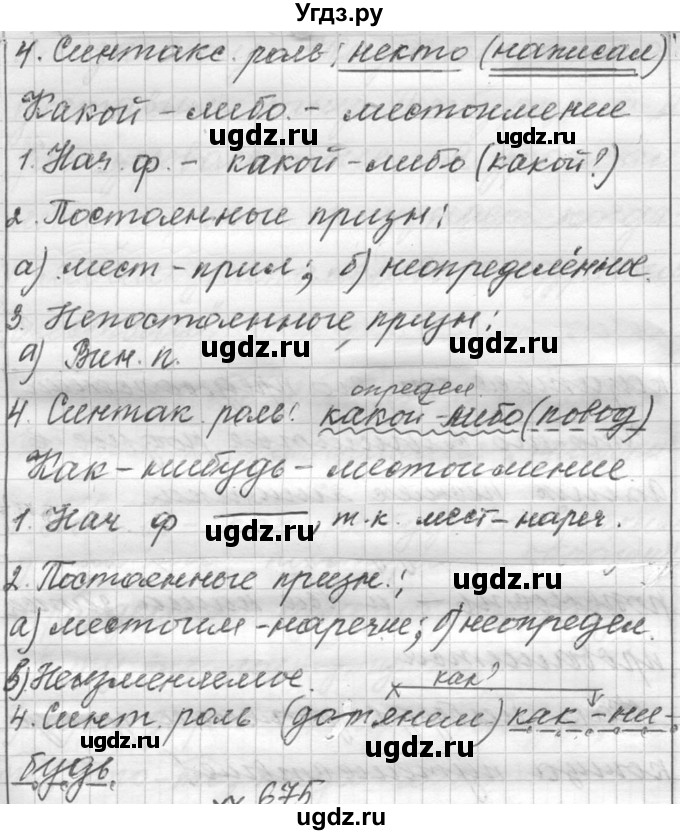 Угдз.ру
4. Синтакс. роль: некто (написал)
Какой-либо - местоимение
ugdz.ru ugdz.ru
1. Нач. ф. - какой-либо (какой?)
2. Постоянные призн:
ugdz.ru ugdz.ru
а) мест-прил; б) неопределённое.
3. Непостоянные призн:
а) Вин. п. ugdz.ru ugdz.ru
определ.
4. Синтак. роль: какой-либо (повод)
Как-нибудь - местоимение.
1. Нач. ф ——, т.к. мест-нареч.
ugdz.ru
2. Постоянные призн.: ugdz.ru
а) местоим-наречие; б) неопредел.
в) Неизменяемое. как?
4. Синт. роль (дотянем) как-ни-
ugdz.ru ugdz.ru
будь.
675